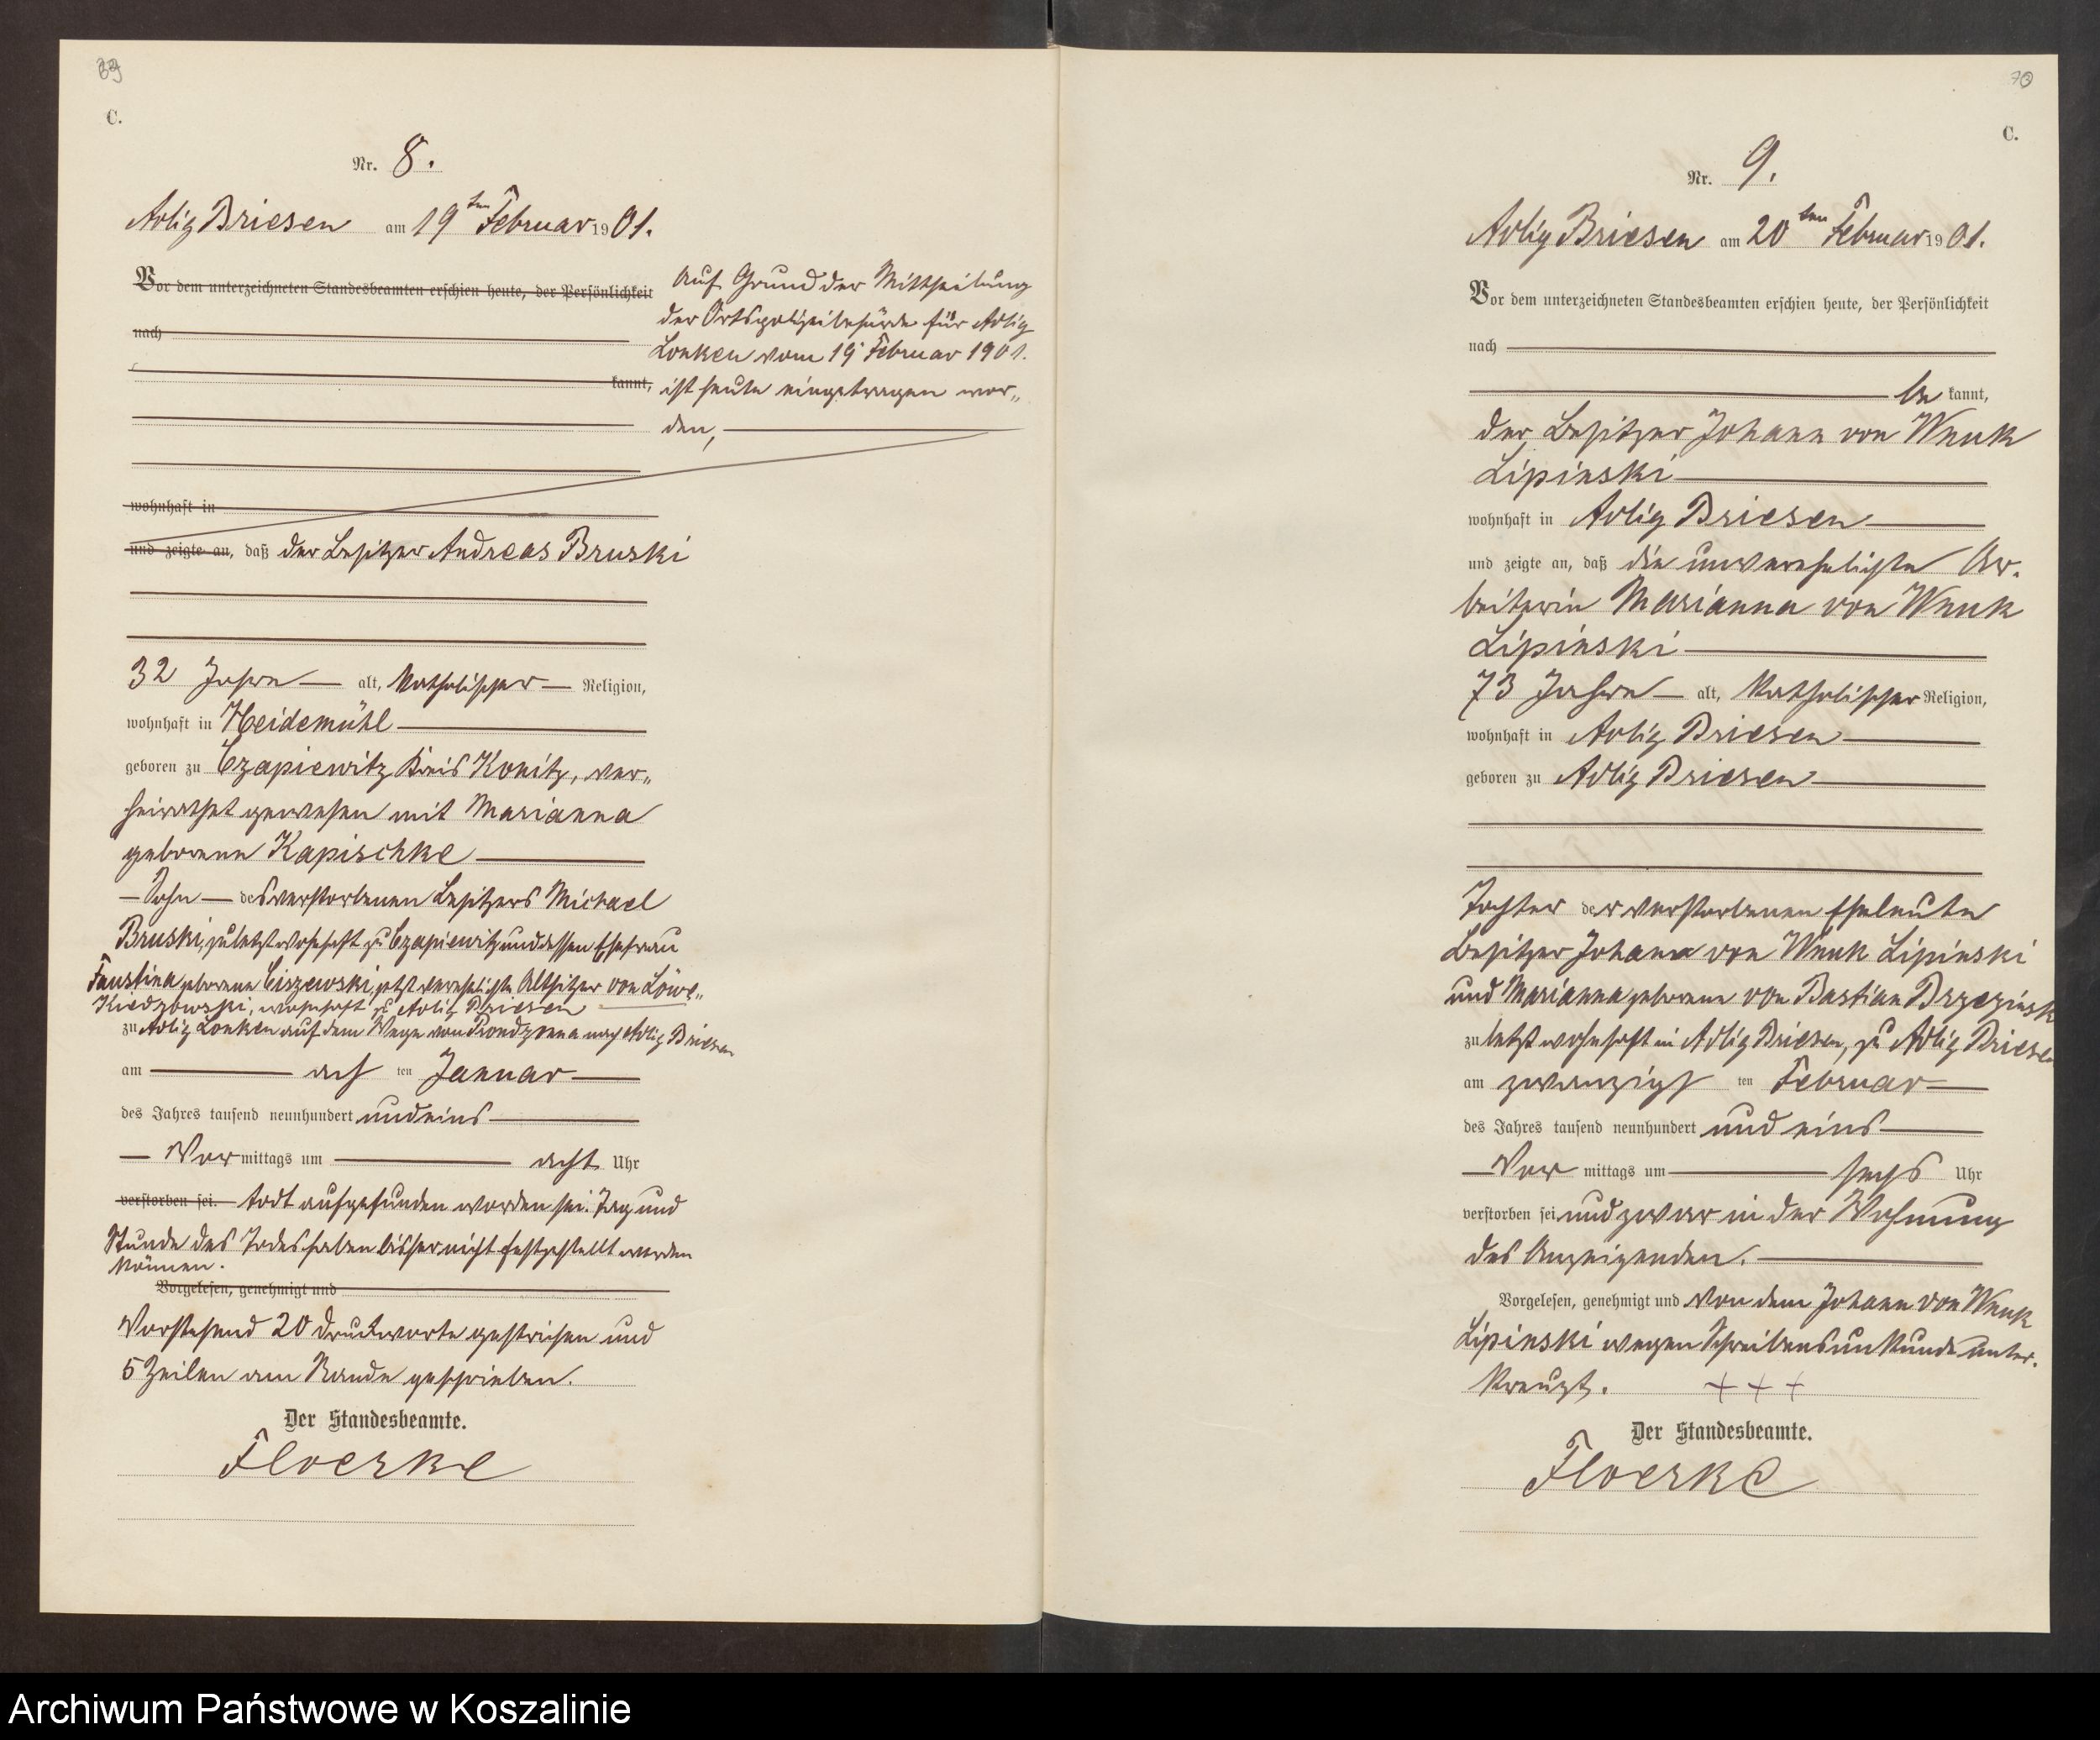 69
C.
Nr. 8.
Adlig Briesen am 19ten Februar 1901.
Vor dem unterzeichneten Standesbeamten erschien heute, der Persönlichkeit
nach
kannt,
Auf Grund der Mittheilung
der Ortspolizeibehörde für Adlig
Lonken vom 19 Februar 1901.
ist heute eingetragen wor„
den,
wohnhaft in
und zeigte an, daß der Besitzer Andreas Bruski
32 Jahre alt, katholischer Religion,
wohnhaft in Heidemühl
geboren zu Czapiewitz Kreis Konitz, ver„
heirathet gewesen mit Marianna
geborene Kapischke
Sohn des verstorbenen Besitzers Michael
Bruski, zuletzt wohnhaft zu Czapiewitz und dessen Ehefrau
Faustina geborene Ciszewski, jetzt verehelichte Altsitzer von Löwe„
Kiedrowski, wohnhaft zu Adlig Briesen
zu Adlig Lonken auf dem Wege von Prondzonna nach Adlig Briesen
am acht ten Januar
des Jahres tausend neunhundert und eins
Vor mittags um acht Uhr
verstorben sei. todt aufgefunden worden sei. Tag und
Stunde des Todes haben bisher nicht festgestellt werden
können.
Vorgelesen, genehmigt und
Vorstehend 20 Druckworte gestrichen und
5 Zeilen am Rande geschrieben.
Der Standesbeamte.
Floerke
70
C.
Nr. 9.
Adlig Briesen am 20ten Februar 1901.
Vor dem unterzeichneten Standesbeamten erschien heute, der Persönlichkeit
nach
be kannt,
der Besitzer Johann von Wnuk
Lipinski
wohnhaft in Adlig Briesen
und zeigte an, daß die unverehelichte Ar„
beiterin Marianna von Wnuk
Lipinski
73 Jahre alt, katholischer Religion,
wohnhaft in Adlig Briesen
geboren zu Adlig Briesen
Tochter der verstorbenen Eheleute
Besitzer Johann von Wnuk Lipinski
und Marianna geborene von Bastian Brzezinsk
zuletzt wohnhaft in Adlig Briesen, zu Adlig Briesen
am zwanzigst ten Februar
des Jahres tausend neunhundert und eins
Vor mittags um sechs Uhr
verstorben sei und zwar in der Wohnung
des Anzeigenden.
Vorgelesen, genehmigt und von dem Johann von Wnuk
Lipinski wegen Schreibensunkunde unter„
kreuzt. + + +
Der Standesbeamte.
Floerke
Archiwum Państwowe w Koszalinie